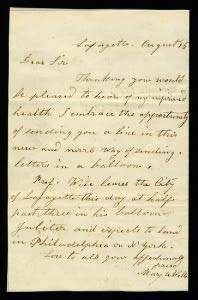 Lafayette August 16
Dear Sir
Thinking you would
be pleased to hear of my improved
health I embrace the opportunity
of sending you a line in this
new and novel way of sending
letters in a balloon.
Prof. Wise leaves the City
of Lafayette this day at half
past three in his balloon
Jupiter and expects to land
in Philadelphia or N York.
Love to all yours affectionately
Mary A Wells